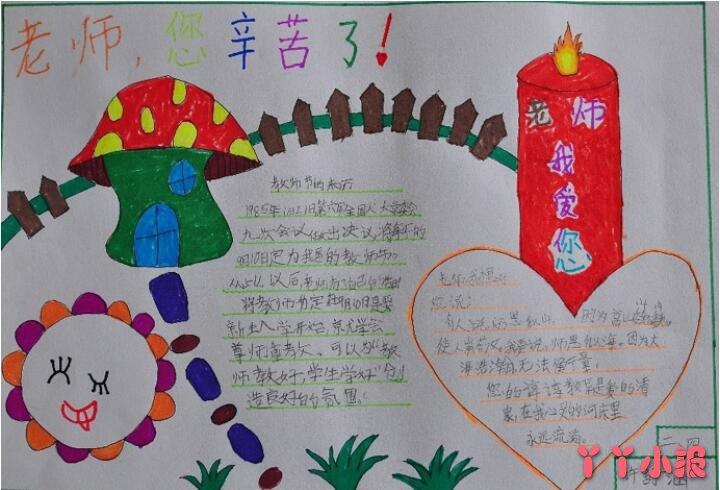 老师,您辛苦了!
老师
我
爱
您
教师节的来历
1985年1月21日第六届全国人大常委会
九次会议做出决议,将每年的
9月10日定为我国的教师节。
以后
将教师节定在9月10日是
新生入学开始
尊师重教 可以为“教
师教好,学生学好”创
造良好的氛围。
您说:
有人说师恩如山,因为高山
使人崇敬。我要说,师恩似海。因为大
海浩瀚无法估量。
您的谆谆教导是爱的清
泉,在我 的河床里
永远流淌。
二四
丫丫小报